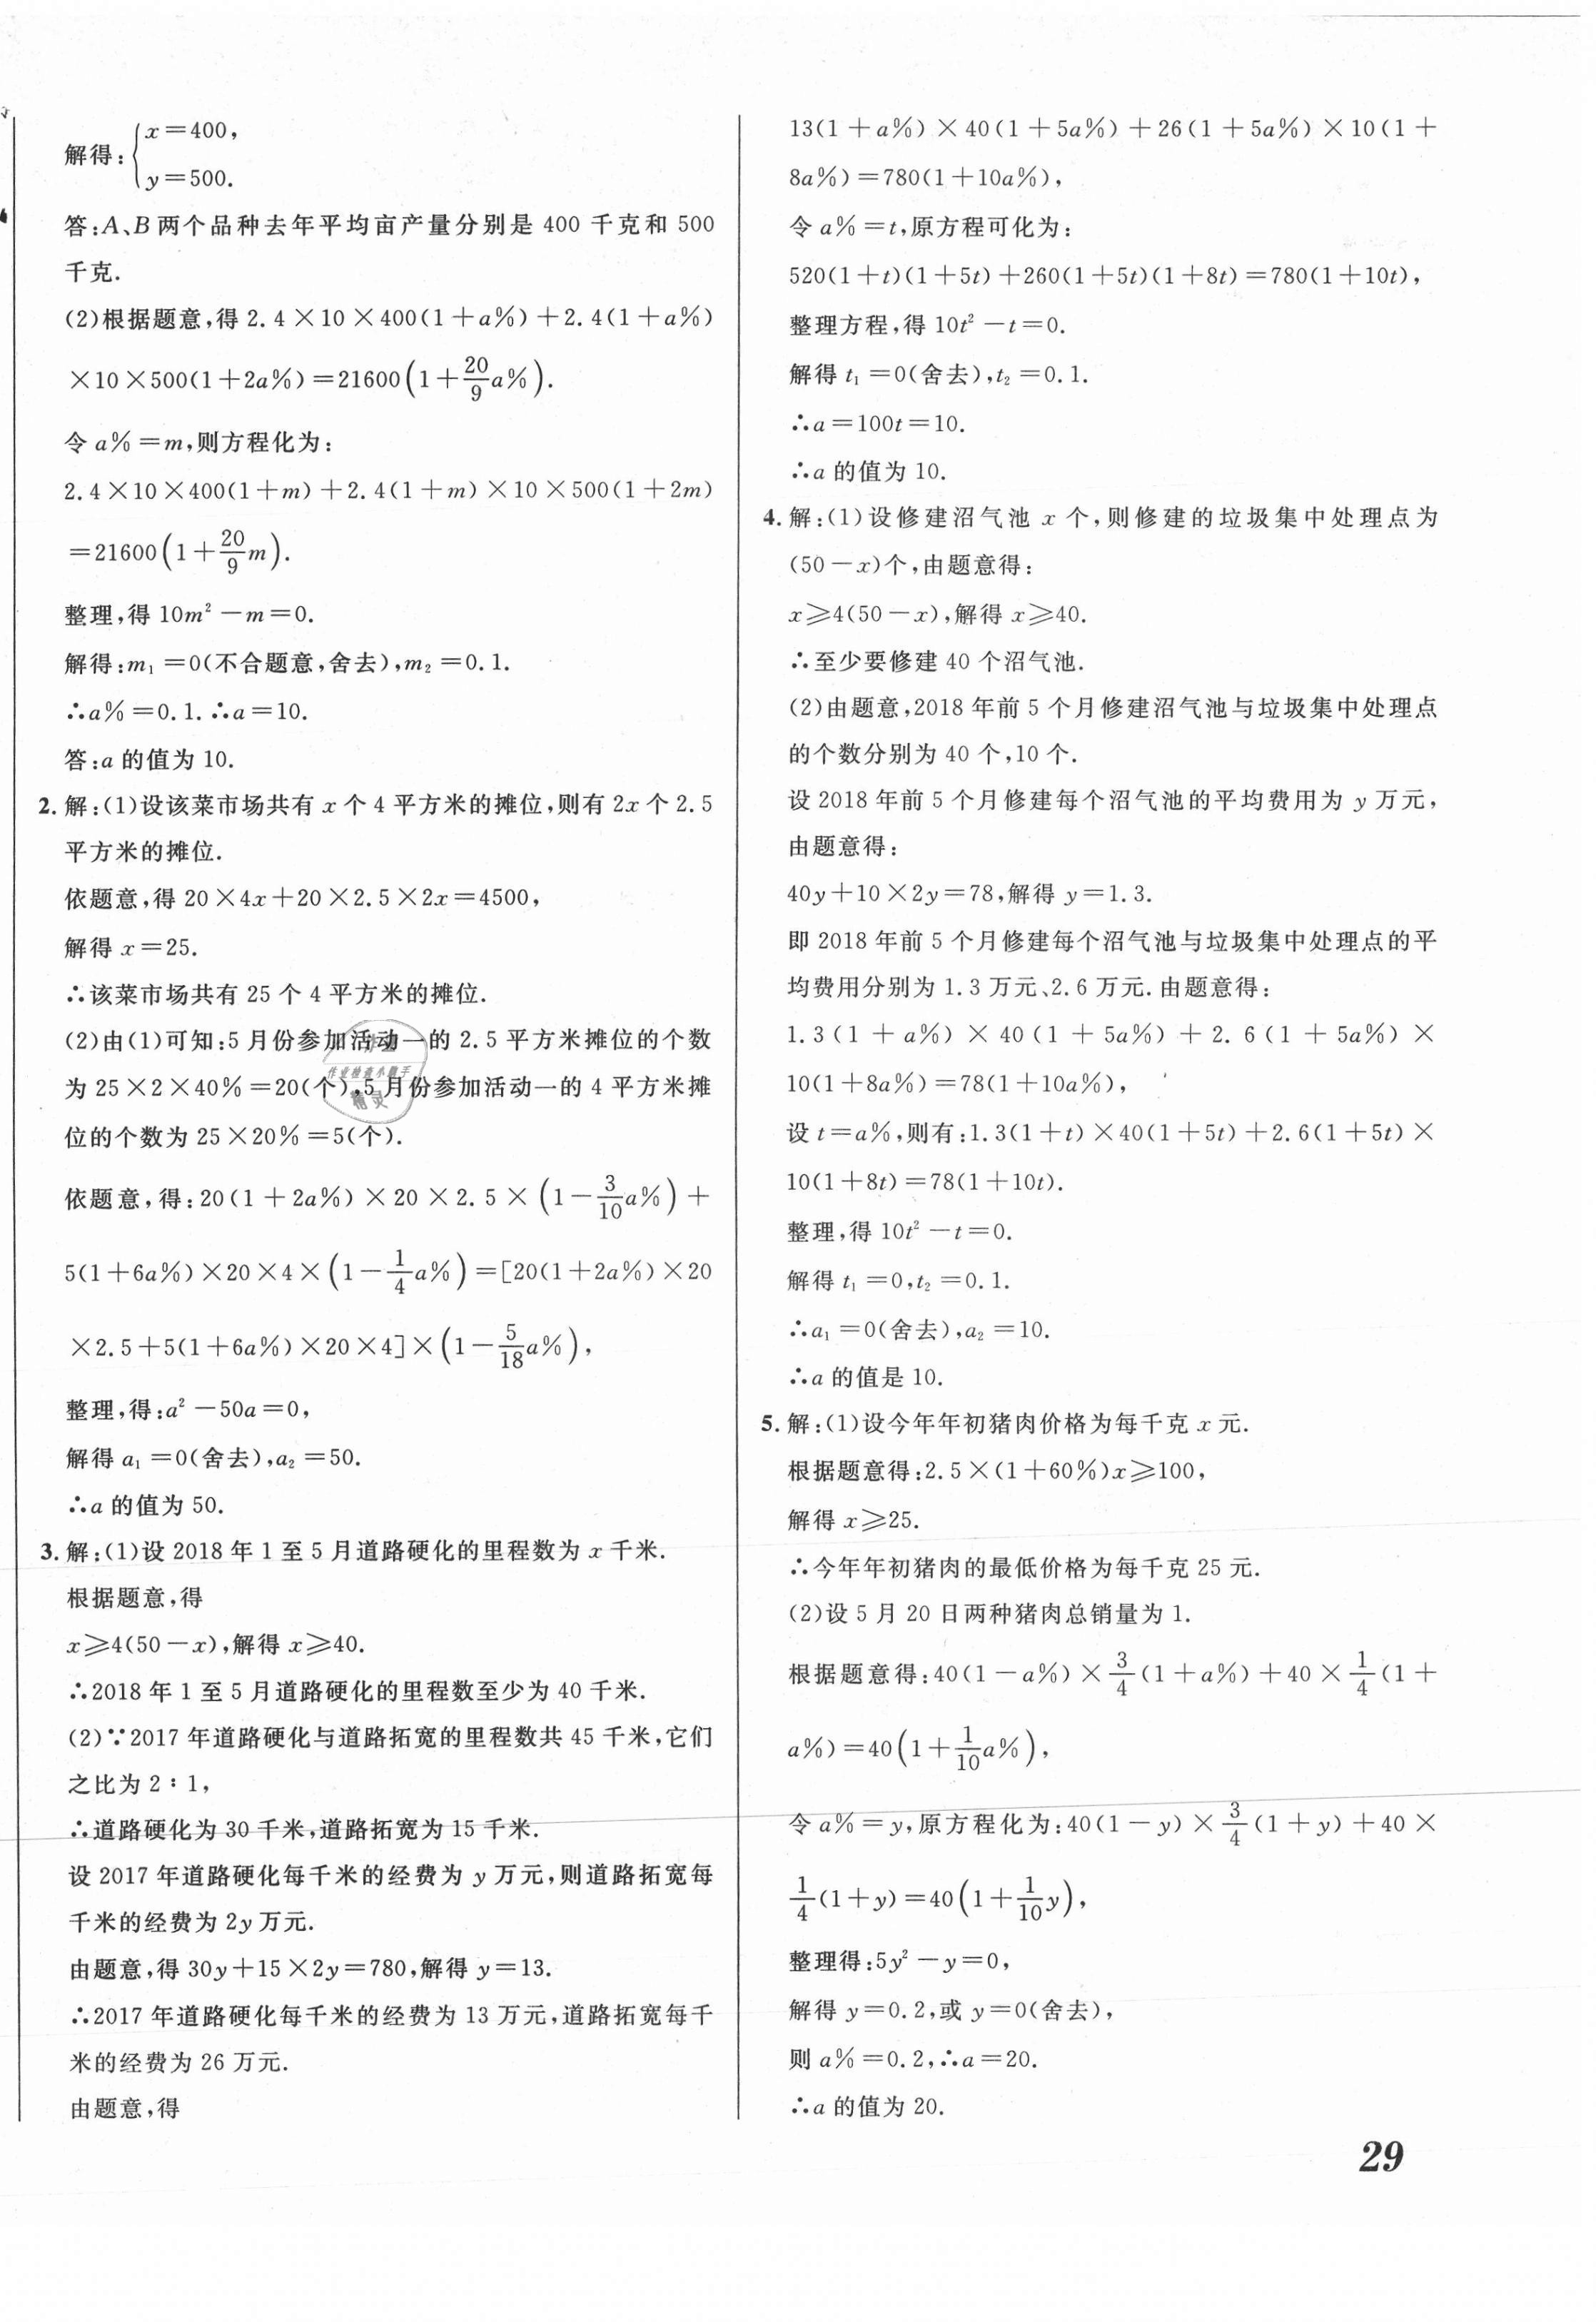 解得:{x=400,
y=500.
答:A、B两个品种去年平均亩产量分别是 400 千克和 500
千克.
(2)根据题意,得 2.4×10×400(1+a%)+2.4(1+a%)
×10×500(1+2a%)=21600(1+20/9a%).
令 a%=m,则方程化为:
2.4×10×400(1+m)+2.4(1+m)×10×500(1+2m)
=21600(1+20/9m).
整理,得 10m²-m=0.
解得:m₁=0(不合题意,舍去),m₂=0.1.
∴a%=0.1.∴a=10.
答:a 的值为 10.
2.解:(1)设该菜市场共有 x 个 4 平方米的摊位,则有 2x 个 2.5
平方米的摊位.
依题意,得 20×4x+20×2.5×2x=4500,
解得 x=25.
∴该菜市场共有 25 个 4 平方米的摊位.
(2)由(1)可知:5 月份参加活动一的 2.5 平方米摊位的个数
为 25×2×40%=20(个),5 月份参加活动一的 4 平方米摊
位的个数为 25×20%=5(个).
依题意,得:20(1+2a%)×20×2.5×(1-3/10a%)+
5(1+6a%)×20×4×(1-1/4a%)=[20(1+2a%)×20
×2.5+5(1+6a%)×20×4]×(1-5/18a%),
整理,得:a²-50a=0,
解得 a₁=0(舍去),a₂=50.
∴a 的值为 50.
3.解:(1)设 2018 年 1 至 5 月道路硬化的里程数为 x 千米.
根据题意,得
x≥4(50-x),解得 x≥40.
∴2018 年 1 至 5 月道路硬化的里程数至少为 40 千米.
(2)∵2017 年道路硬化与道路拓宽的里程数共 45 千米,它们
之比为 2∶1,
∴道路硬化为 30 千米,道路拓宽为 15 千米.
设 2017 年道路硬化每千米的经费为 y 万元,则道路拓宽每
千米的经费为 2y 万元.
由题意,得 30y+15×2y=780,解得 y=13.
∴2017 年道路硬化每千米的经费为 13 万元,道路拓宽每千
米的经费为 26 万元.
由题意,得
13(1+a%)×40(1+5a%)+26(1+5a%)×10(1+
8a%)=780(1+10a%),
令 a%=t,原方程可化为:
520(1+t)(1+5t)+260(1+5t)(1+8t)=780(1+10t),
整理方程,得 10t²-t=0.
解得 t₁=0(舍去),t₂=0.1.
∴a=100t=10.
∴a 的值为 10.
4.解:(1)设修建沼气池 x 个,则修建的垃圾集中处理点为
(50-x)个,由题意得:
x≥4(50-x),解得 x≥40.
∴至少要修建 40 个沼气池.
(2)由题意,2018 年前 5 个月修建沼气池与垃圾集中处理点
的个数分别为 40 个,10 个.
设 2018 年前 5 个月修建每个沼气池的平均费用为 y 万元,
由题意得:
40y+10×2y=78,解得 y=1.3.
即 2018 年前 5 个月修建每个沼气池与垃圾集中处理点的平
均费用分别为 1.3 万元、2.6 万元.由题意得:
1.3(1+a%)×40(1+5a%)+2.6(1+5a%)×
10(1+8a%)=78(1+10a%),
设 t=a%,则有:1.3(1+t)×40(1+5t)+2.6(1+5t)×
10(1+8t)=78(1+10t).
整理,得 10t²-t=0.
解得 t₁=0,t₂=0.1.
∴a₁=0(舍去),a₂=10.
∴a 的值是 10.
5.解:(1)设今年年初猪肉价格为每千克 x 元.
根据题意得:2.5×(1+60%)x≥100,
解得 x≥25.
∴今年年初猪肉的最低价格为每千克 25 元.
(2)设 5 月 20 日两种猪肉总销量为 1.
根据题意得:40(1-a%)×3/4(1+a%)+40×1/4(1+
a%)=40(1+1/10a%),
令 a%=y,原方程化为:40(1-y)×3/4(1+y)+40×
1/4(1+y)=40(1+1/10y),
整理得:5y²-y=0,
解得 y=0.2,或 y=0(舍去),
则 a%=0.2,∴a=20.
∴a 的值为 20.
29